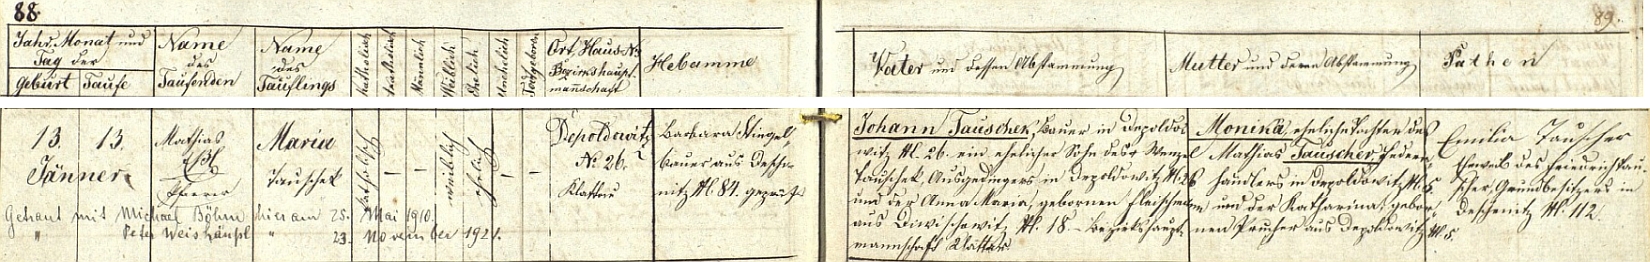 88.
89.
Jahr, Monat und
Tag der
Geburt Taufe
Name
des
Taufenden
Name
des
Täuflings
Katholisch
Männlich
Weiblich
Ehelich
Unehelich
Todtgeboren
Ort, Haus-No
Bezirkshaupt-
mannschaft
Hebamme
Vater und dessen Abstammung
Mutter und deren Abstammung
Pathen
13. 13.
Jänner
Mathias
Pfarrer
Maria
Tauschek
katholisch
weiblich
ehelich
Depoldowitz
No 26.
Klattau
Barbara Stingel,
Bauer aus Desche-
nitz No. 84. geprüft
Johann Tauschek, Bauer in Depoldo-
witz No. 26. ein ehelicher Sohn des † Wenzel
Tauschek, Ausgedingers in Depoldowitz No. 26
und der Anna Maria, gebornen Fleischmann
aus Diwischowitz No. 18 - Bezirkshaupt-
mannschaft Klattau
Monika, eheliche Tochter des
Mathias Tauscher, Federn-
händlers in Depoldowitz No. 5.
und der Katharina gebor-
nen Prucher aus Depoldowitz No. 5.
Emilia Tauscher
Eheweib des Friedrich Tau-
scher, Grundbesitzers in
Deschenitz No. 112.
Getraut mit Michael Böhm hier am 25. Mai 1910.
" Peter Weishäupl " 23. November 1921.